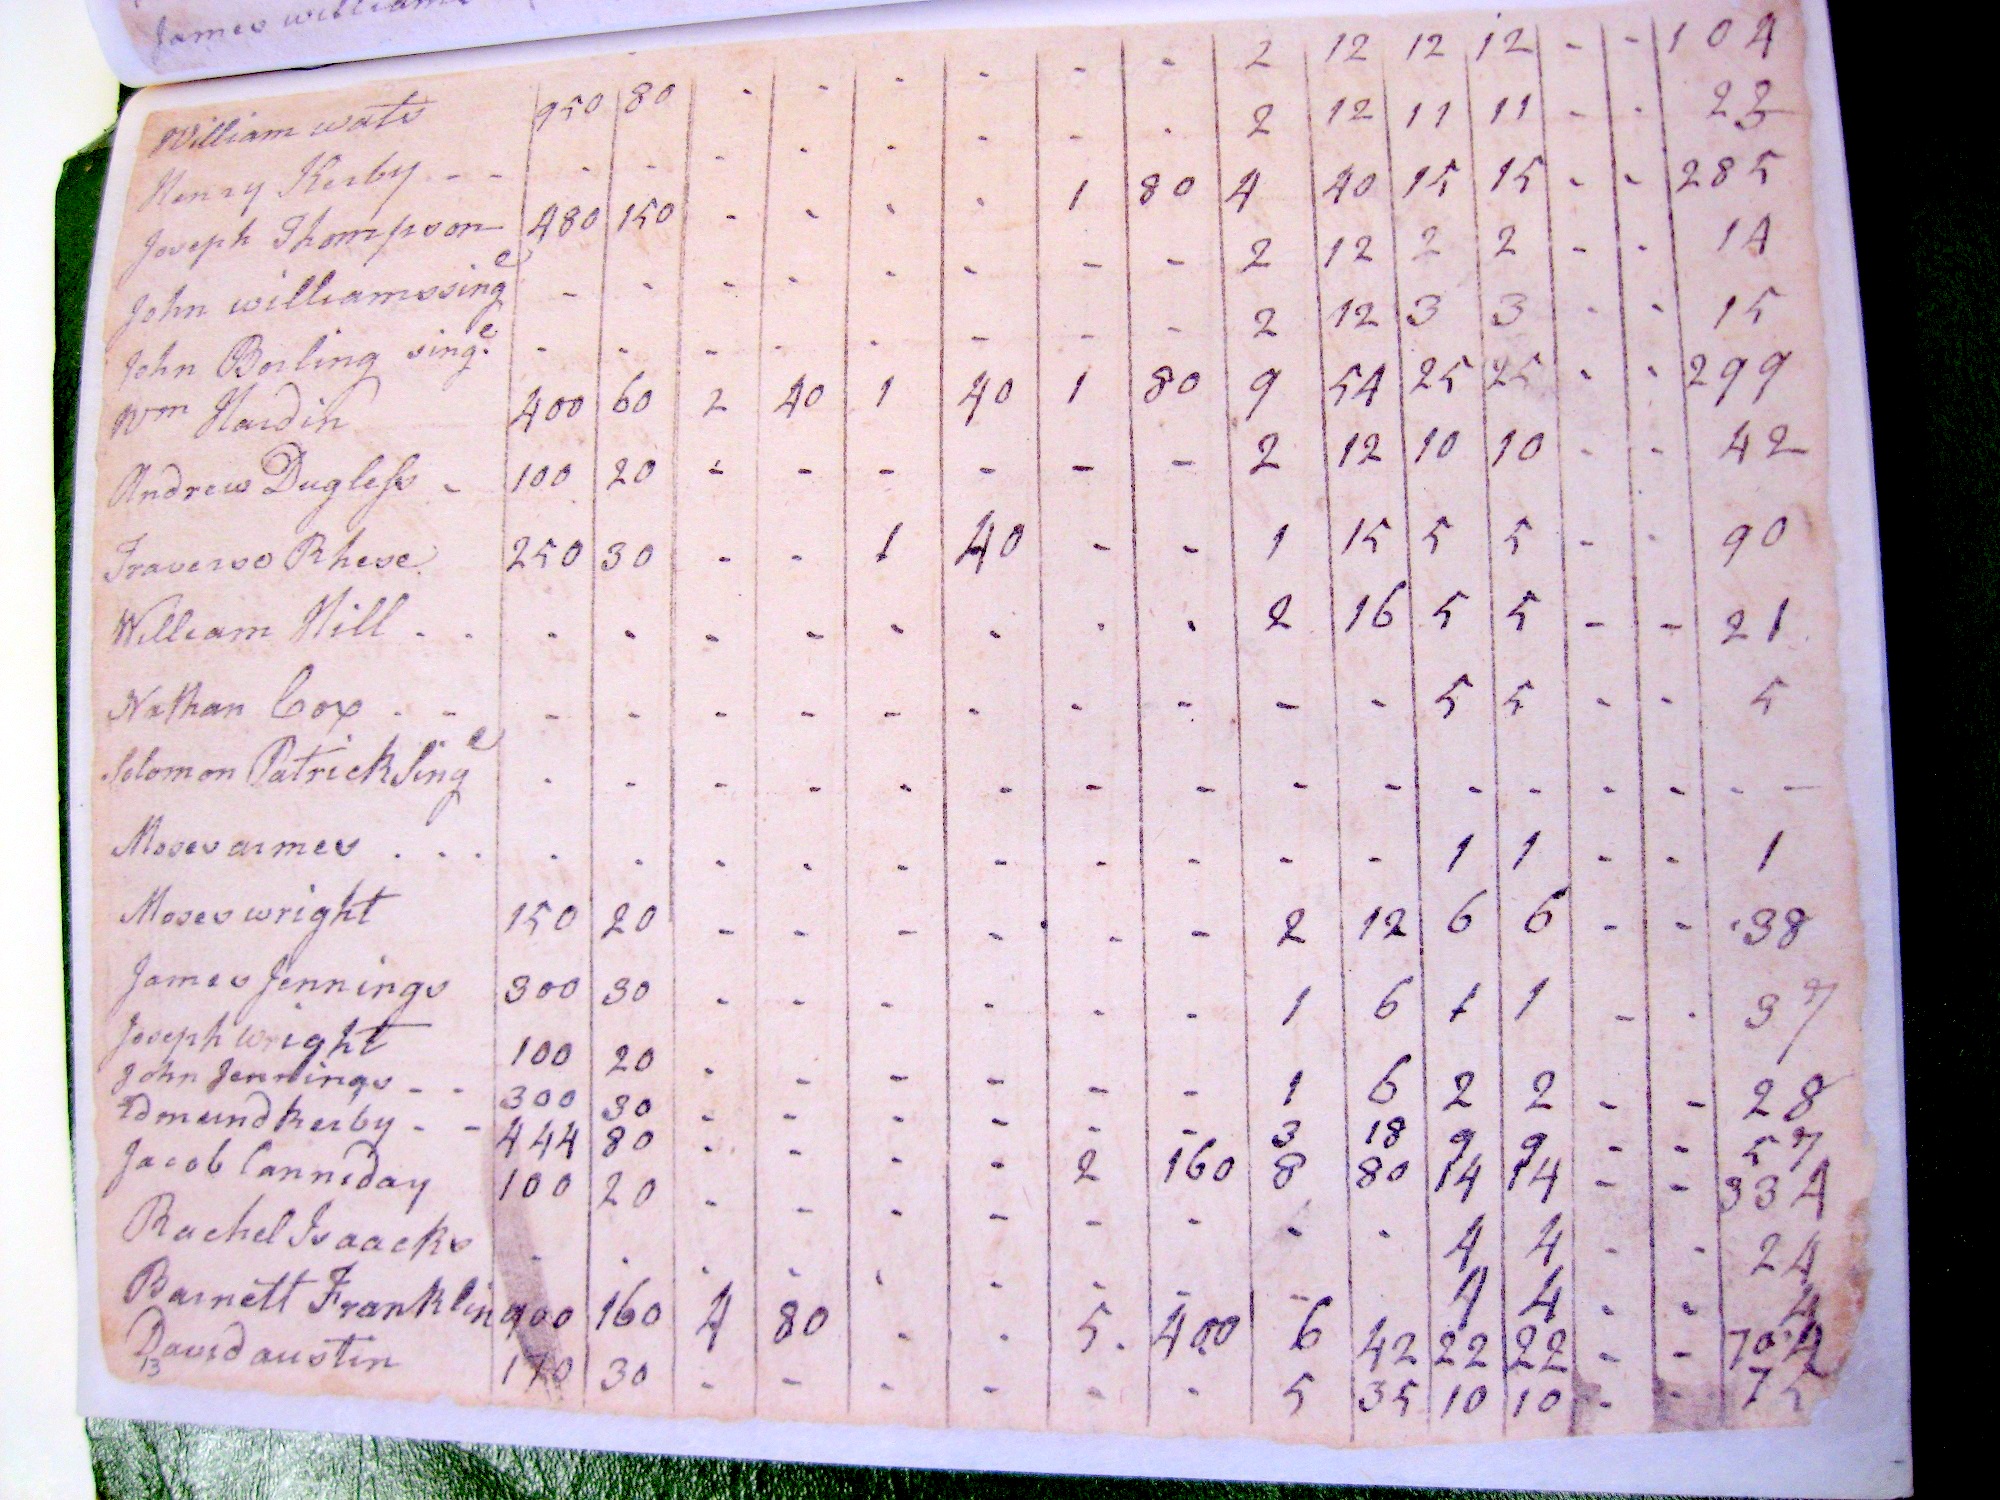 James williams
William wats 950 80 - - - - - - 2 12 12 12 - - 104
Henry Kerby - - - - - - - - - - 2 12 11 11 - - 23
Joseph Thompson 480 150 - - - - 1 80 4 40 15 15 - - 285
John williams singe - - - - - - - - 2 12 2 2 - - 14
John Borling singe - - - - - - - - 2 12 3 3 - - 15
Wm Hardin 400 60 2 40 1 40 1 80 9 54 25 25 - - 299
Andrew Dugless - 100 20 - - - - - - 2 12 10 10 - - 42
Traverso Rhese 250 30 - - 1 40 - - 1 15 5 5 - - 90
William Hill - - - - - - - - - - 2 16 5 5 - - 21
Nathan Cox - - - - - - - - - - - - 5 5 - - 5
Solomon Patrick Singe - - - - - - - - - - - - - - - -
Moses armes - - - - - - - - - - - - - 1 1 - - 1
Moses wright 150 20 - - - - - - 2 12 6 6 - - 38
James Jennings 300 30 - - - - - - 1 6 1 1 - - 37
Joseph wright 100 20 - - - - - - 1 6 2 2 - - 28
John Jennings - - 300 30 - - - - - - 3 18 9 9 - - 57
Edmund Kerby - - 444 80 - - - - 2 160 8 80 14 14 - - 334
Jacob Canniday 100 20 - - - - - - - - 4 4 - - 24
Rachel Isaacks - - - - - - - - - 4 4 - - 4
Barnett Franklin 900 160 4 80 - - 5 400 6 42 22 22 - - 704
David austin 170 30 - - - - - - 5 35 10 10 - - 75
13